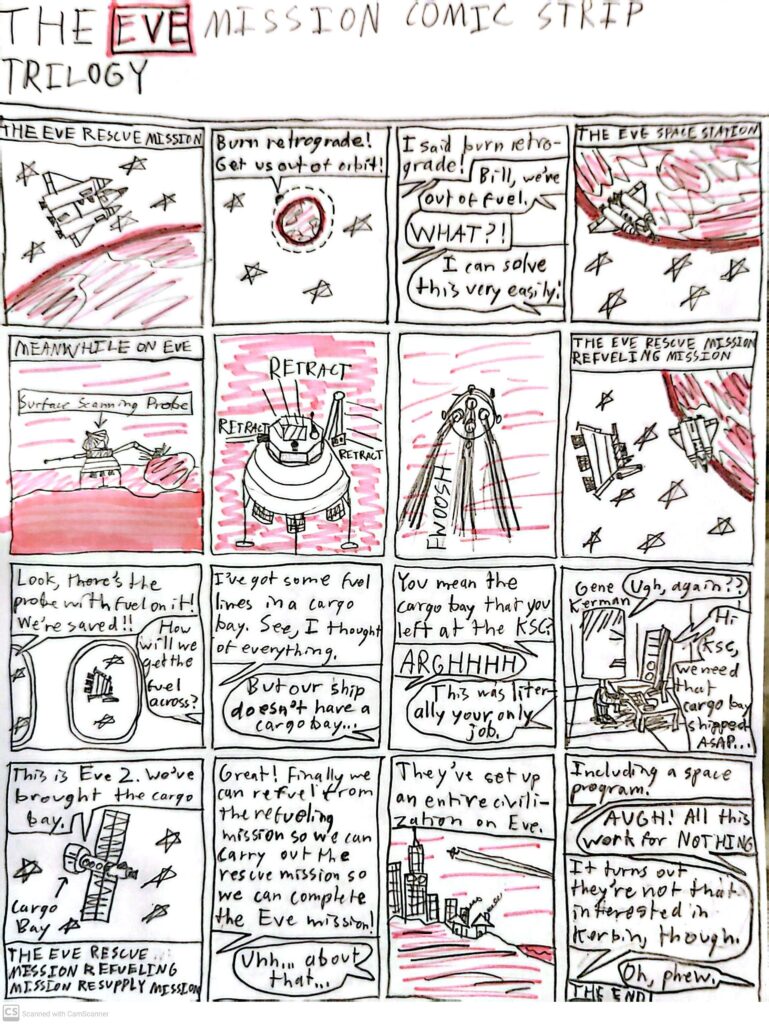 THE EVE MISSION COMIC STRIP
TRILOGY
THE EVE RESCUE MISSION
Burn retrograde!
Get us out of orbit!
I said burn retro-
grade!
Bill, we're
out of fuel.
WHAT?!
I can solve
this very easily!
THE EVE SPACE STATION
MEANWHILE ON EVE
Surface Scanning Probe
RETRACT
RETRACT
RETRACT
FWOOSH
THE EVE RESCUE MISSION
REFUELING MISSION
Look, there's the
probe with fuel on it!
We're saved!!
How
will we
get the
fuel
across?
I've got some fuel
lines in a cargo
bay. See, I thought
of everything.
But our ship
doesn't have a
cargo bay...
You mean the
cargo bay that you
left at the KSC?
ARGHHHH
This was liter-
ally your only
job.
Gene
Kerman
Ugh, again??
Hi
KSC,
we need
that
cargo bay
shipped
ASAP...
This is Eve 2. We've
brought the cargo
bay.
Cargo
Bay
THE EVE RESCUE
MISSION REFUELING
MISSION RESUPPLY MISSION
Great! Finally we
can refuel from
the refueling
mission so we can
carry out the
rescue mission so
we can complete
the Eve mission!
Uhh... about
that...
They've set up
an entire civili-
zation on Eve.
Including a space
program.
AUGH! All this
work for NOTHING
It turns out
they're not that
interested in
Kerbin, though.
Oh, phew.
THE END!
CS Scanned with CamScanner